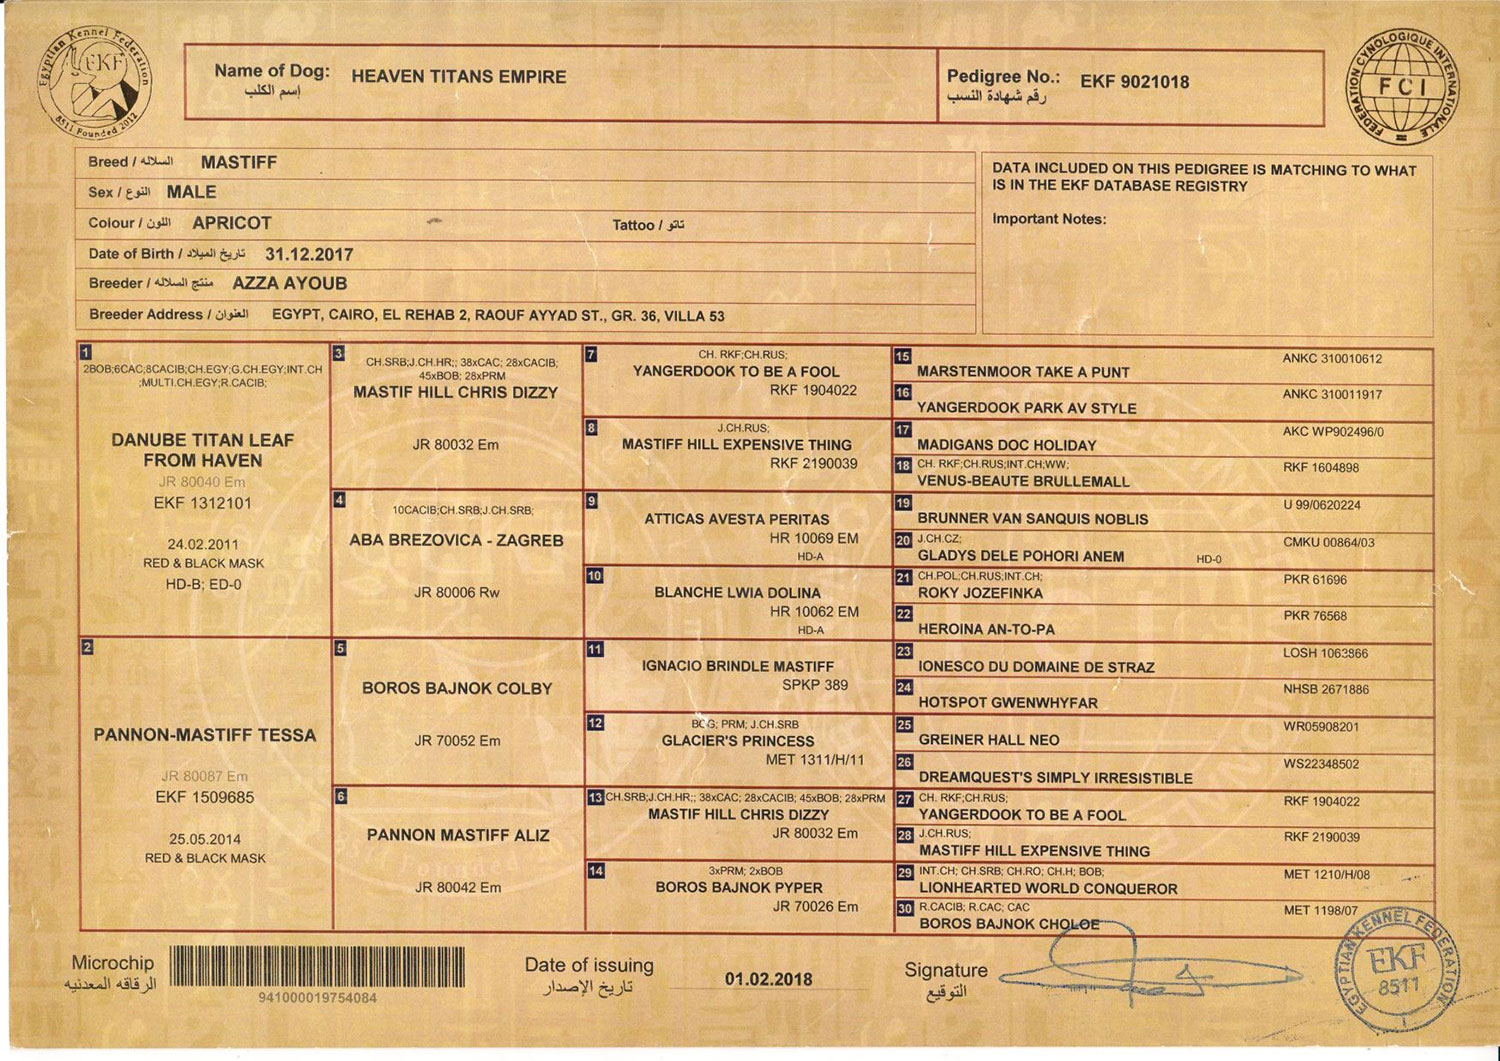 Egyptian Kennel Federation
EKF
8511 Founded 2012
Name of Dog: HEAVEN TITANS EMPIRE
إسم الكلب
Pedigree No.: EKF 9021018
رقم شهادة النسب
FEDERATION CYNOLOGIQUE INTERNATIONALE
FCI
Breed / السلاله MASTIFF
Sex / النوع MALE
Colour / اللون APRICOT Tattoo / تاتو
Date of Birth / تاريخ الميلاد 31.12.2017
Breeder / منتج السلاله AZZA AYOUB
Breeder Address / العنوان EGYPT, CAIRO, EL REHAB 2, RAOUF AYYAD ST., GR. 36, VILLA 53
DATA INCLUDED ON THIS PEDIGREE IS MATCHING TO WHAT
IS IN THE EKF DATABASE REGISTRY
Important Notes:
1
2BOB;6CAC;8CACIB;CH.EGY;G.CH.EGY;INT.CH
;MULTI.CH.EGY;R.CACIB;
DANUBE TITAN LEAF
FROM HAVEN
JR 80040 Em
EKF 1312101
24.02.2011
RED & BLACK MASK
HD-B; ED-0
2
PANNON-MASTIFF TESSA
JR 80087 Em
EKF 1509685
25.05.2014
RED & BLACK MASK
3
CH.SRB;J.CH.HR;; 38xCAC; 28xCACIB;
45xBOB; 28xPRM
MASTIF HILL CHRIS DIZZY
JR 80032 Em
4
10CACIB;CH.SRB;J.CH.SRB;
ABA BREZOVICA - ZAGREB
JR 80006 Rw
5
BOROS BAJNOK COLBY
JR 70052 Em
6
PANNON MASTIFF ALIZ
JR 80042 Em
7
CH. RKF;CH.RUS;
YANGERDOOK TO BE A FOOL
RKF 1904022
8
J.CH.RUS;
MASTIFF HILL EXPENSIVE THING
RKF 2190039
9
ATTICAS AVESTA PERITAS
HR 10069 EM
HD-A
10
BLANCHE LWIA DOLINA
HR 10062 EM
HD-A
11
IGNACIO BRINDLE MASTIFF
SPKP 389
12
BOG; PRM; J.CH.SRB
GLACIER'S PRINCESS
MET 1311/H/11
13 CH.SRB;J.CH.HR;; 38xCAC; 28xCACIB; 45xBOB; 28xPRM
MASTIF HILL CHRIS DIZZY
JR 80032 Em
14
3xPRM; 2xBOB
BOROS BAJNOK PYPER
JR 70026 Em
15 ANKC 310010612
MARSTENMOOR TAKE A PUNT
16 ANKC 310011917
YANGERDOOK PARK AV STYLE
17 AKC WP902496/0
MADIGANS DOC HOLIDAY
18 CH. RKF;CH.RUS;INT.CH;WW; RKF 1604898
VENUS-BEAUTE BRULLEMALL
19 U 99/0620224
BRUNNER VAN SANQUIS NOBLIS
20 J.CH.CZ; CMKU 00864/03
GLADYS DELE POHORI ANEM HD-0
21 CH.POL;CH.RUS;INT.CH; PKR 61696
ROKY JOZEFINKA
22 PKR 76568
HEROINA AN-TO-PA
23 LOSH 1063866
IONESCO DU DOMAINE DE STRAZ
24 NHSB 2671886
HOTSPOT GWENWHYFAR
25 WR05908201
GREINER HALL NEO
26 WS22348502
DREAMQUEST'S SIMPLY IRRESISTIBLE
27 CH. RKF;CH.RUS; RKF 1904022
YANGERDOOK TO BE A FOOL
28 J.CH.RUS; RKF 2190039
MASTIFF HILL EXPENSIVE THING
29 INT.CH; CH.SRB; CH.RO; CH.H; BOB; MET 1210/H/08
LIONHEARTED WORLD CONQUEROR
30 R.CACIB; R.CAC; CAC MET 1198/07
BOROS BAJNOK CHOLOE
Microchip
الرقاقه المعدنيه
941000019754084
Date of issuing 01.02.2018
تاريخ الإصدار
Signature
التوقيع
EGYPTIAN KENNEL FEDERATION
EKF
8511